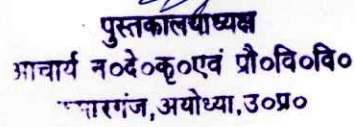 पुस्तकालयाध्यक्ष
आचार्य न०दे०कृ०एवं प्रौ०वि०वि०
अयोध्या,उ०प्र०